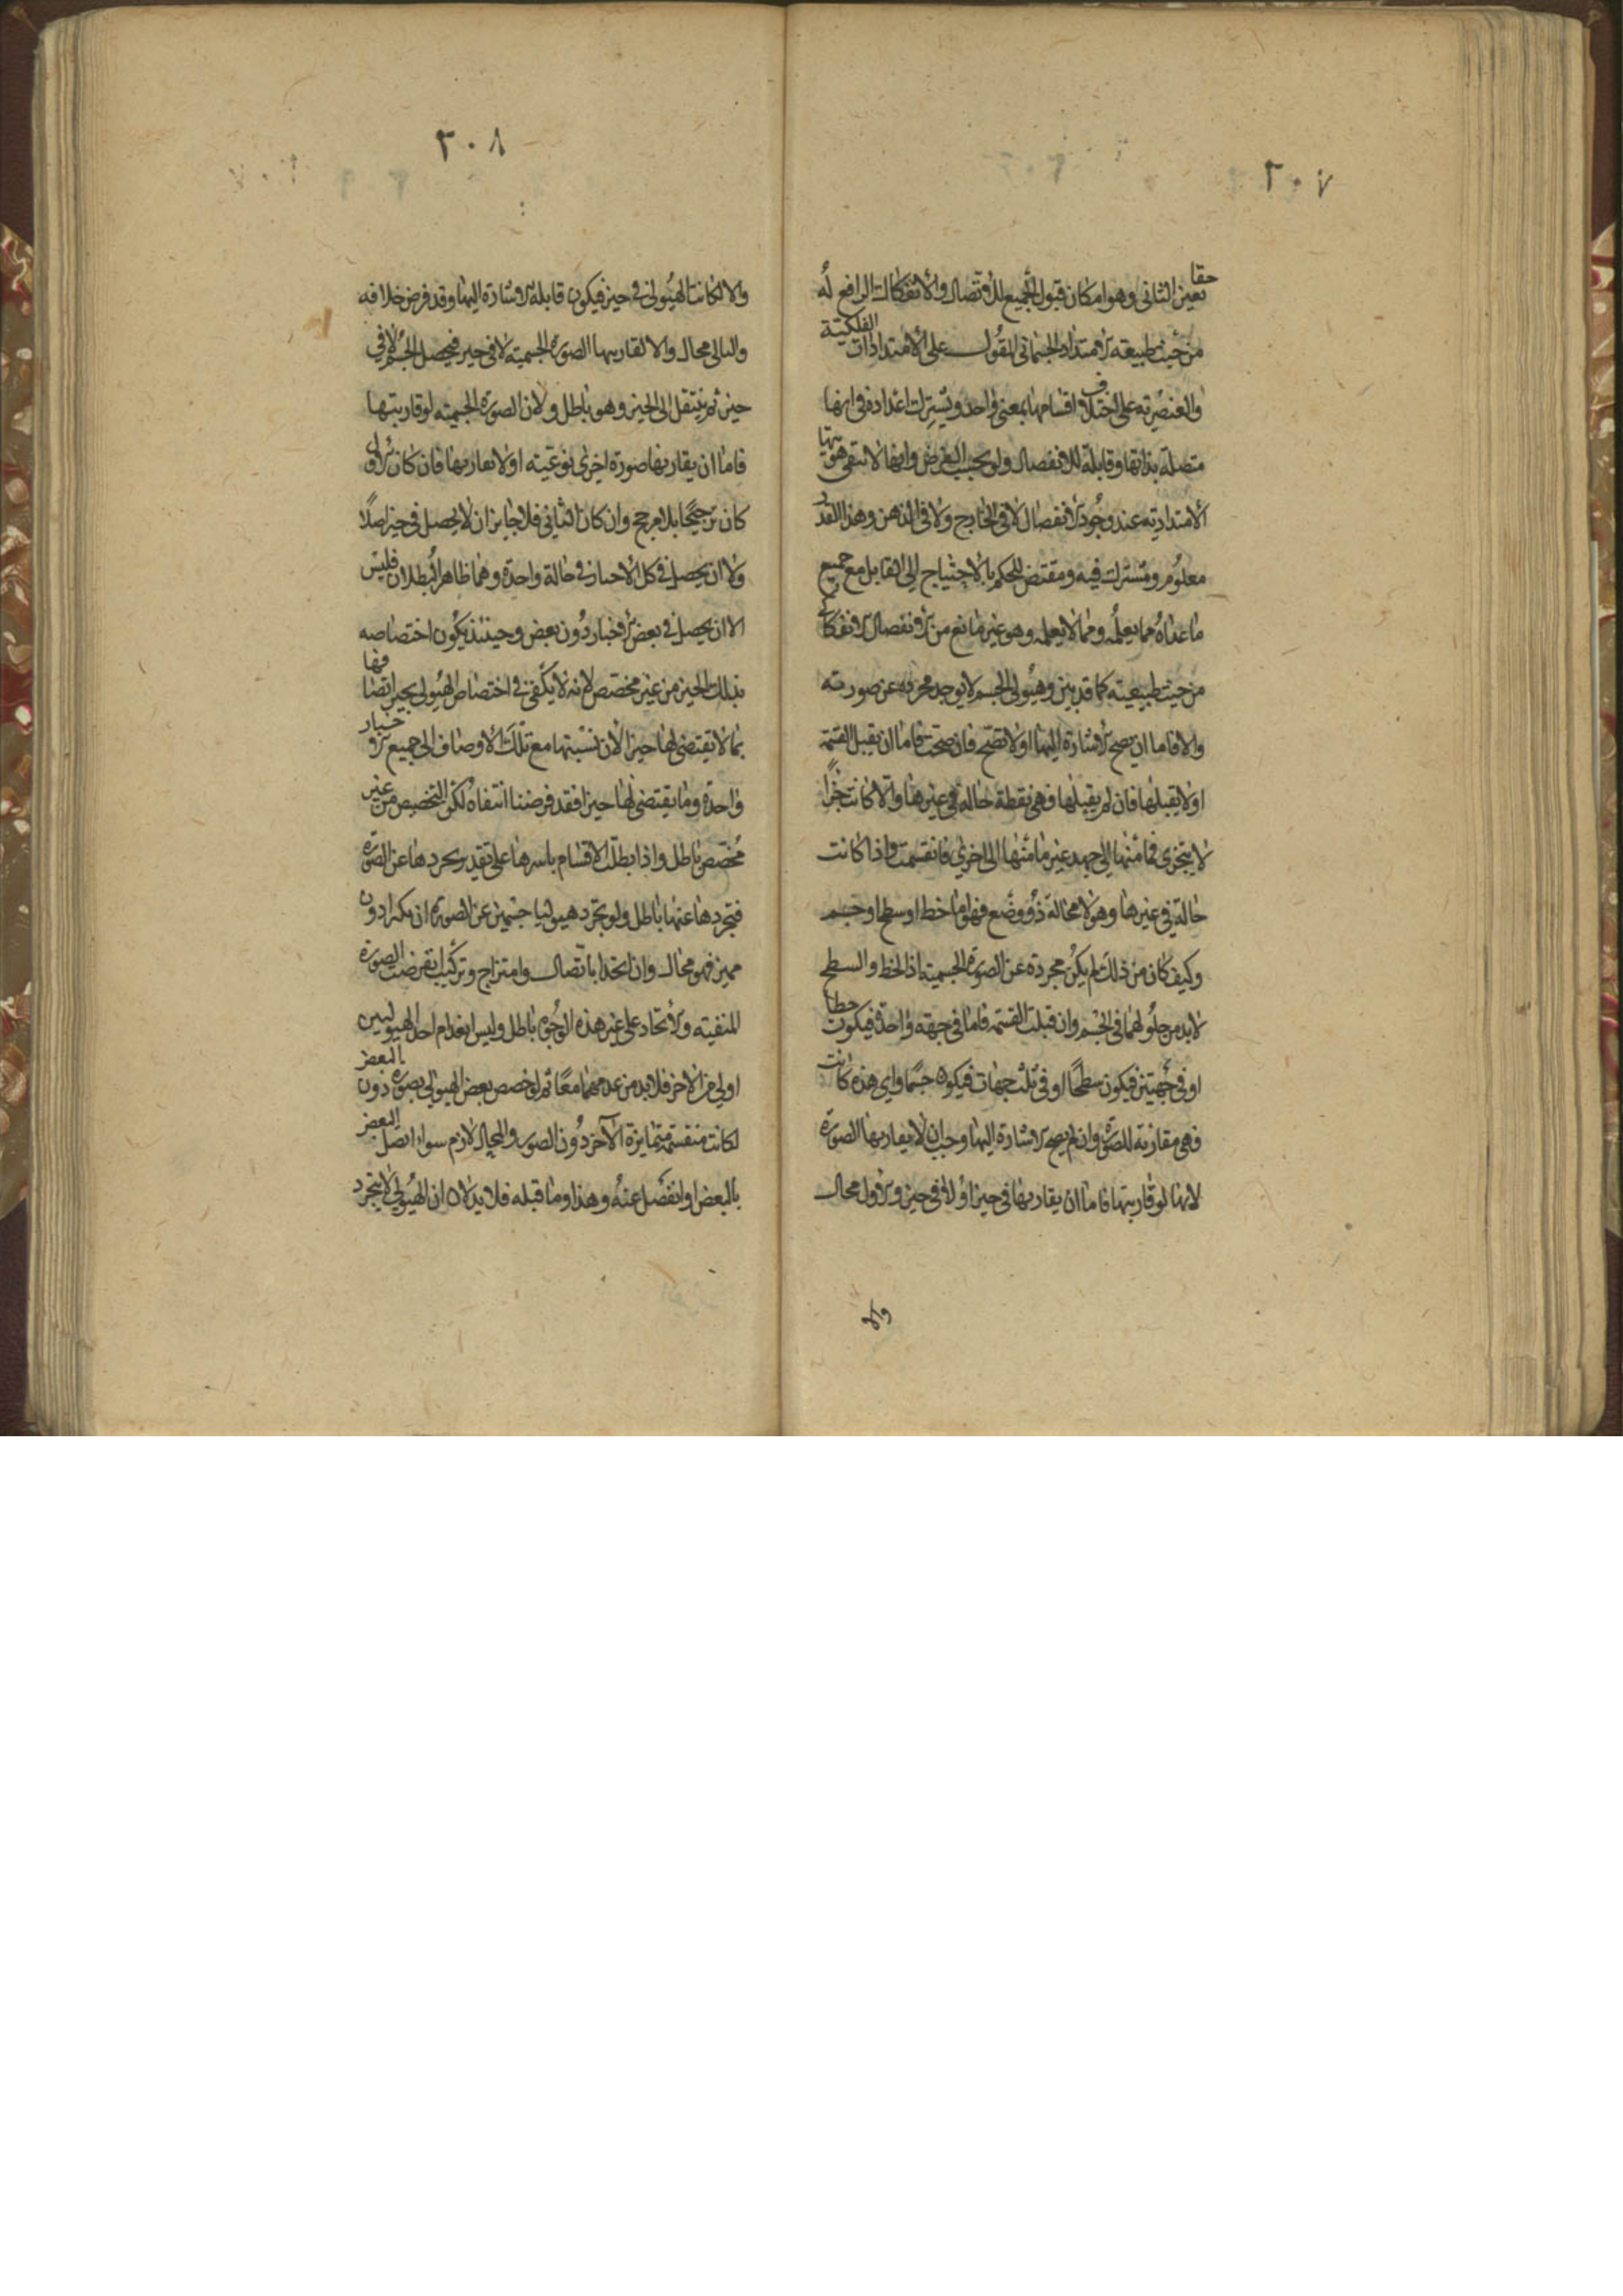 ٢٠٧
حقا
تعين الثاني وهو امكان قبول الجميع للاتصال والانفكاك الرافع له
من حيث طبيعته الامتداد الجسماني المقول على الامتدادات الفلكية
والعنصرية على اختلاف اقسامها بمعنى واحد ويشترك اعداده في انها
متصلة بذاتها وقابلة للانفصال ولو بحسب الفرض وانها لا تبقى هويتها
الامتدادية عند وجود الانفصال لا في الخارج ولا في الذهن وهذا القدر
معلوم ومشترك فيه ومقتض للحكم بالاحتياج الى القابل مع جميع
ما عداه مما يعلم ومما لا يعلم وهو غير مانع من الانفصال الانفكاكي
من حيث طبيعته كما قد بين وهيولى الجسم لا يوجد مجردة عن صورته
والا فاما ان يصح الاشارة اليها او لا تصح فان صحت فاما ان يقبل القسمة
او لا يقبلها فان لم يقبلها فهي نقطة حالة في غيرها والا كانت جزأ
لا يتجزى فما منها الى جهة غير ما منها الى اخرى فانقسمت واذا كانت
حالة في غيرها وهو لا محالة ذو وضع فهو اما خط او سطح او جسم
وكيف كان من ذلك لم يكن مجردة عن الصورة الجسمية اذ الخط والسطح
لابد من حلولهما في الجسم وان قبلت القسمة فاما في جهة واحدة فيكون خطا
او في جهتين فيكون سطحا او في ثلث جهات فيكون جسما واي هذه كانت
فهي مقارنة للصورة وان لم يصح الاشارة اليها وجب ان لا يقارنها الصورة
لانها لو قارنتها فاما ان يقارنها في حيز او لا في حيز والاول محال
والا
٢٠٨
والا لكانت الهيولى في حيز فيكون قابلة الاشارة اليها وقد فرض خلافه
والتالي محال والا لقارنها الصورة الجسمية لا في حيز فيحصل الجسم لا في
حيز ثم ينتقل الى الحيز وهو باطل ولان الصورة الجسمية لو قارنتها
فاما ان يقارنها صورة اخرى نوعية او لا يقارنها فان كان الاول
كان ترجيحا بلا مرجح وان كان الثاني فلا جايز ان لا يحصل في حيز اصلا
ولا ان يحصل في كل الاحياز في حالة واحدة وهما ظاهرا البطلان فليس
الا ان يحصل في بعض الاحياز دون بعض وحينئذ يكون اختصاصه
بذلك الحيز من غير مخصص لانه لا يكفي في اختصاص الهيولى بحيز اتصافها
بما لا تقتضي لها حيزا لان نسبتها مع تلك الاوصاف الى جميع الاحياز
واحدة وما يقتضي لها حيزا فقد فرضنا انتفاه لكن التخصيص من غير
مخصص باطل واذا بطلت الاقسام باسرها على تقدير تجردها عن الصورة
فتجردها عنها باطل ولو تجرد هيوليا جسمين عن الصورة ان تكثرا دون
مميز فهو محال وان اتحدا باتصال وامتزاج وتركيب انقرضت الصورة
المنفية والاتحاد على غير هذه الوجوه باطل وليس انعدام احد الهيوليين
اولى من الاخر فلابد من عدمهما معا ثم لو خصص بعض الهيولى بصورة دون البعض
لكانت منقسمة متمايزة الآخر دون الصور والمحال لازم سواء اتصل البعض
بالبعض او انفصل عنه وهذا وما قبله فلا يدلان ان الهيولى لا يتجرد